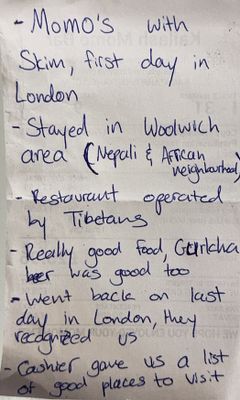 - Momo's with
Skim, first day in
London
- Stayed in Woolwich
area (Nepali & African
neighbourhood)
- Restaurant operated
by Tibetans
- Really good food, Gurkha
beer was good too
- Went back on last
day in London, they
recognized us
- Cashier gave us a list
of good places to visit